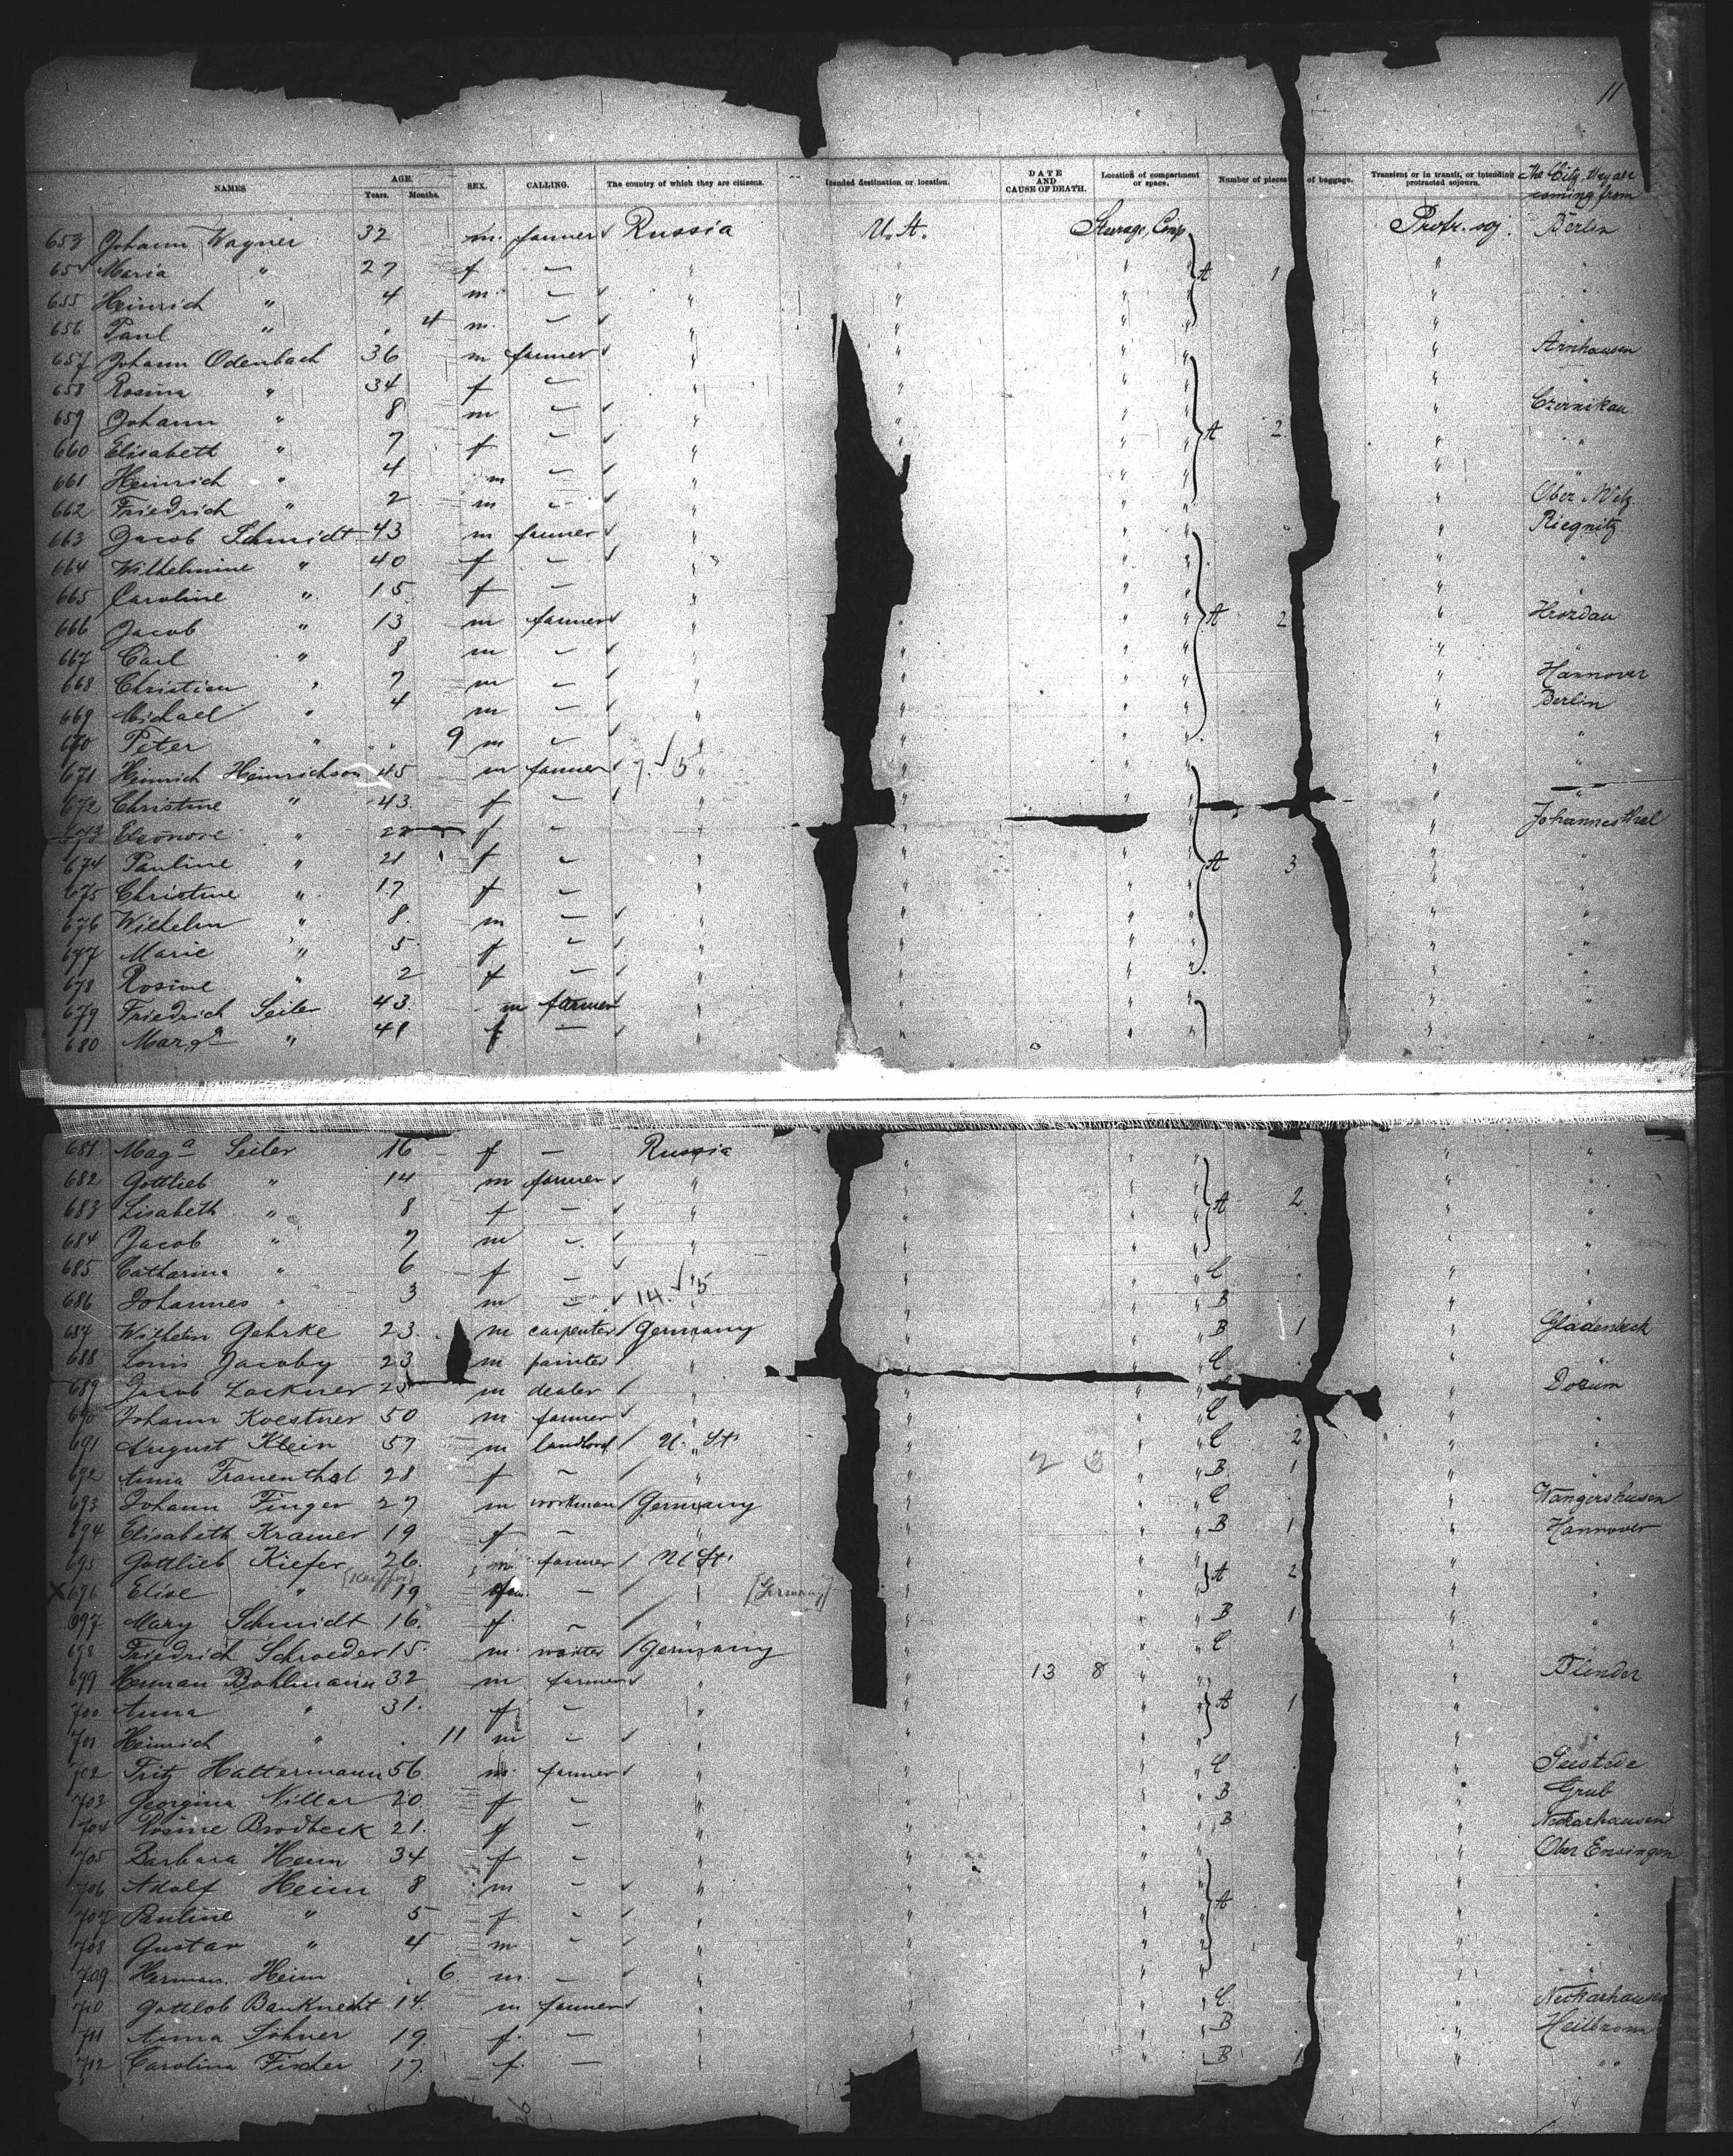 11
NAMES AGE. Years. Months. SEX. CALLING. The country of which they are citizens. Intended destination or location. DATE AND CAUSE OF DEATH. Location of compartment or space. Number of pieces of baggage. Transient or in transit, or intending protracted sojourn. The City they are coming from
653 Johann Wagner 32 m. farmer Russia U. St. Steerage, Comp. Protr. soj. Berlin
654 Maria " 27 f — " " " A 1 "
655 Heinrich " 4 m. — " " " "
656 Paul " 4 m. — " " " "
657 Johann Odenbach 36 m farmer " " " " Arnhausen
658 Rosina " 34 f — " " " "
659 Johann " 8 m — " " " " Czernikau
660 Elisabeth " 7 f — " " " A 2 "
661 Heinrich " 4 m — " " " "
662 Friedrich " 2 m — " " "
663 Jacob Schmidt 43 m farmer " " "
664 Wilhelmine " 40 f — " " "
665 Caroline " 15 f — " " "
666 Jacob " 13 m farmer " " " A 2 "
667 Carl " 8 m — " " " "
668 Christian " 7 m — " " " " Hannover
669 Michael " 4 m — " " " " Berlin
670 Peter " 9 m — " " " "
671 Heinrich Heinrichson 45 m farmer 7. 5 " "
672 Christine " 43 f — " " "
673 Eleonore " 22 f — " " " Johannesthal
674 Pauline " 21 f — " " " A 3 "
675 Christine " 17 f — " " " "
676 Wilhelm " 8. m — " " " "
677 Marie " 5 f — " " " "
678 Rosine " 2 f — " " " "
679 Friedrich Seiler 43 m farmer " " "
680 Marga " 41 f — " " "
681 Maga Seiler 16 f — Russia " " "
682 Gottlieb " 14 m farmer " " " "
683 Lisabeth " 8 f — " " " A 2 "
684 Jacob " 7 m — " " " "
685 Catharina " 6 f — " " C "
686 Johannes " 3 m — 14. 5 " B "
687 Wilhelm Gehrke 23. m carpenter Germany " " B 1 " Gladenbeck
688 Louis Jacoby 23 m painter " " C "
689 Jacob Lockner 25 m dealer " " " Dorum
690 Johann Koestner 50 m farmer " " C "
691 August Klein 57 m landlord U. St. " " C 2 "
692 Anna Frauenthal 28 f — " " B 1 "
693 Johann Finger 27 m workman Germany " C " Wangershausen
694 Elisabeth Kramer 19 f — " " B 1 " Hannover
695 Gottlieb Kiefer 26. m farmer U St. " A 2 "
(Keiffer)
X 696 Elise " 19 fm — [Germany] " "
697 Mary Schmidt 16. f. — " " B 1 "
698 Friedrich Schroeder 15. m. waiter Germany " C "
699 Herman Bohlmann 32 m farmer " 13 8 " " Blender
700 Anna " 31. f — " " " A 1 "
701 Heinrich " 11 m — " " " "
702 Fritz Haltermann 56 m. farmer " " " C "
703 Georgina Villar 20 f — " " " B " Grub
704 Rosine Brodbeck 21. f — " " " B " Neckarhausen
705 Barbara Heim 34 f — " " " " Ober Ensingen
706 Adolf Heim 8 m — " " " "
707 Pauline " 5 f — " " " A "
708 Gustav " 4 m — " " " "
709 Herman. Heim 6 m. — " " " "
710 Gottlob Bauknecht 14. m farmer " " C " Neckarhausen
711 Anna Söhner 19. f. — " " B " Heilbronn
712 Carolina Fischer 17. f. — " " B 1 " "